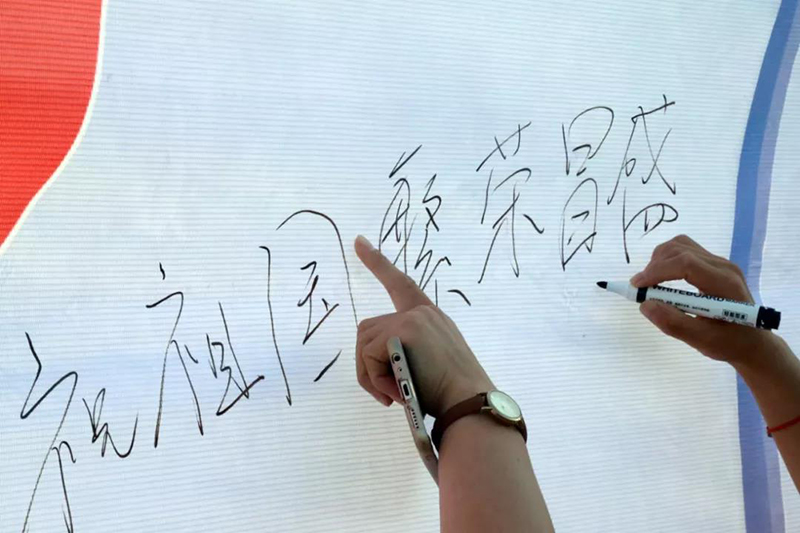 祝祖国繁荣昌盛
WHITEBOARD